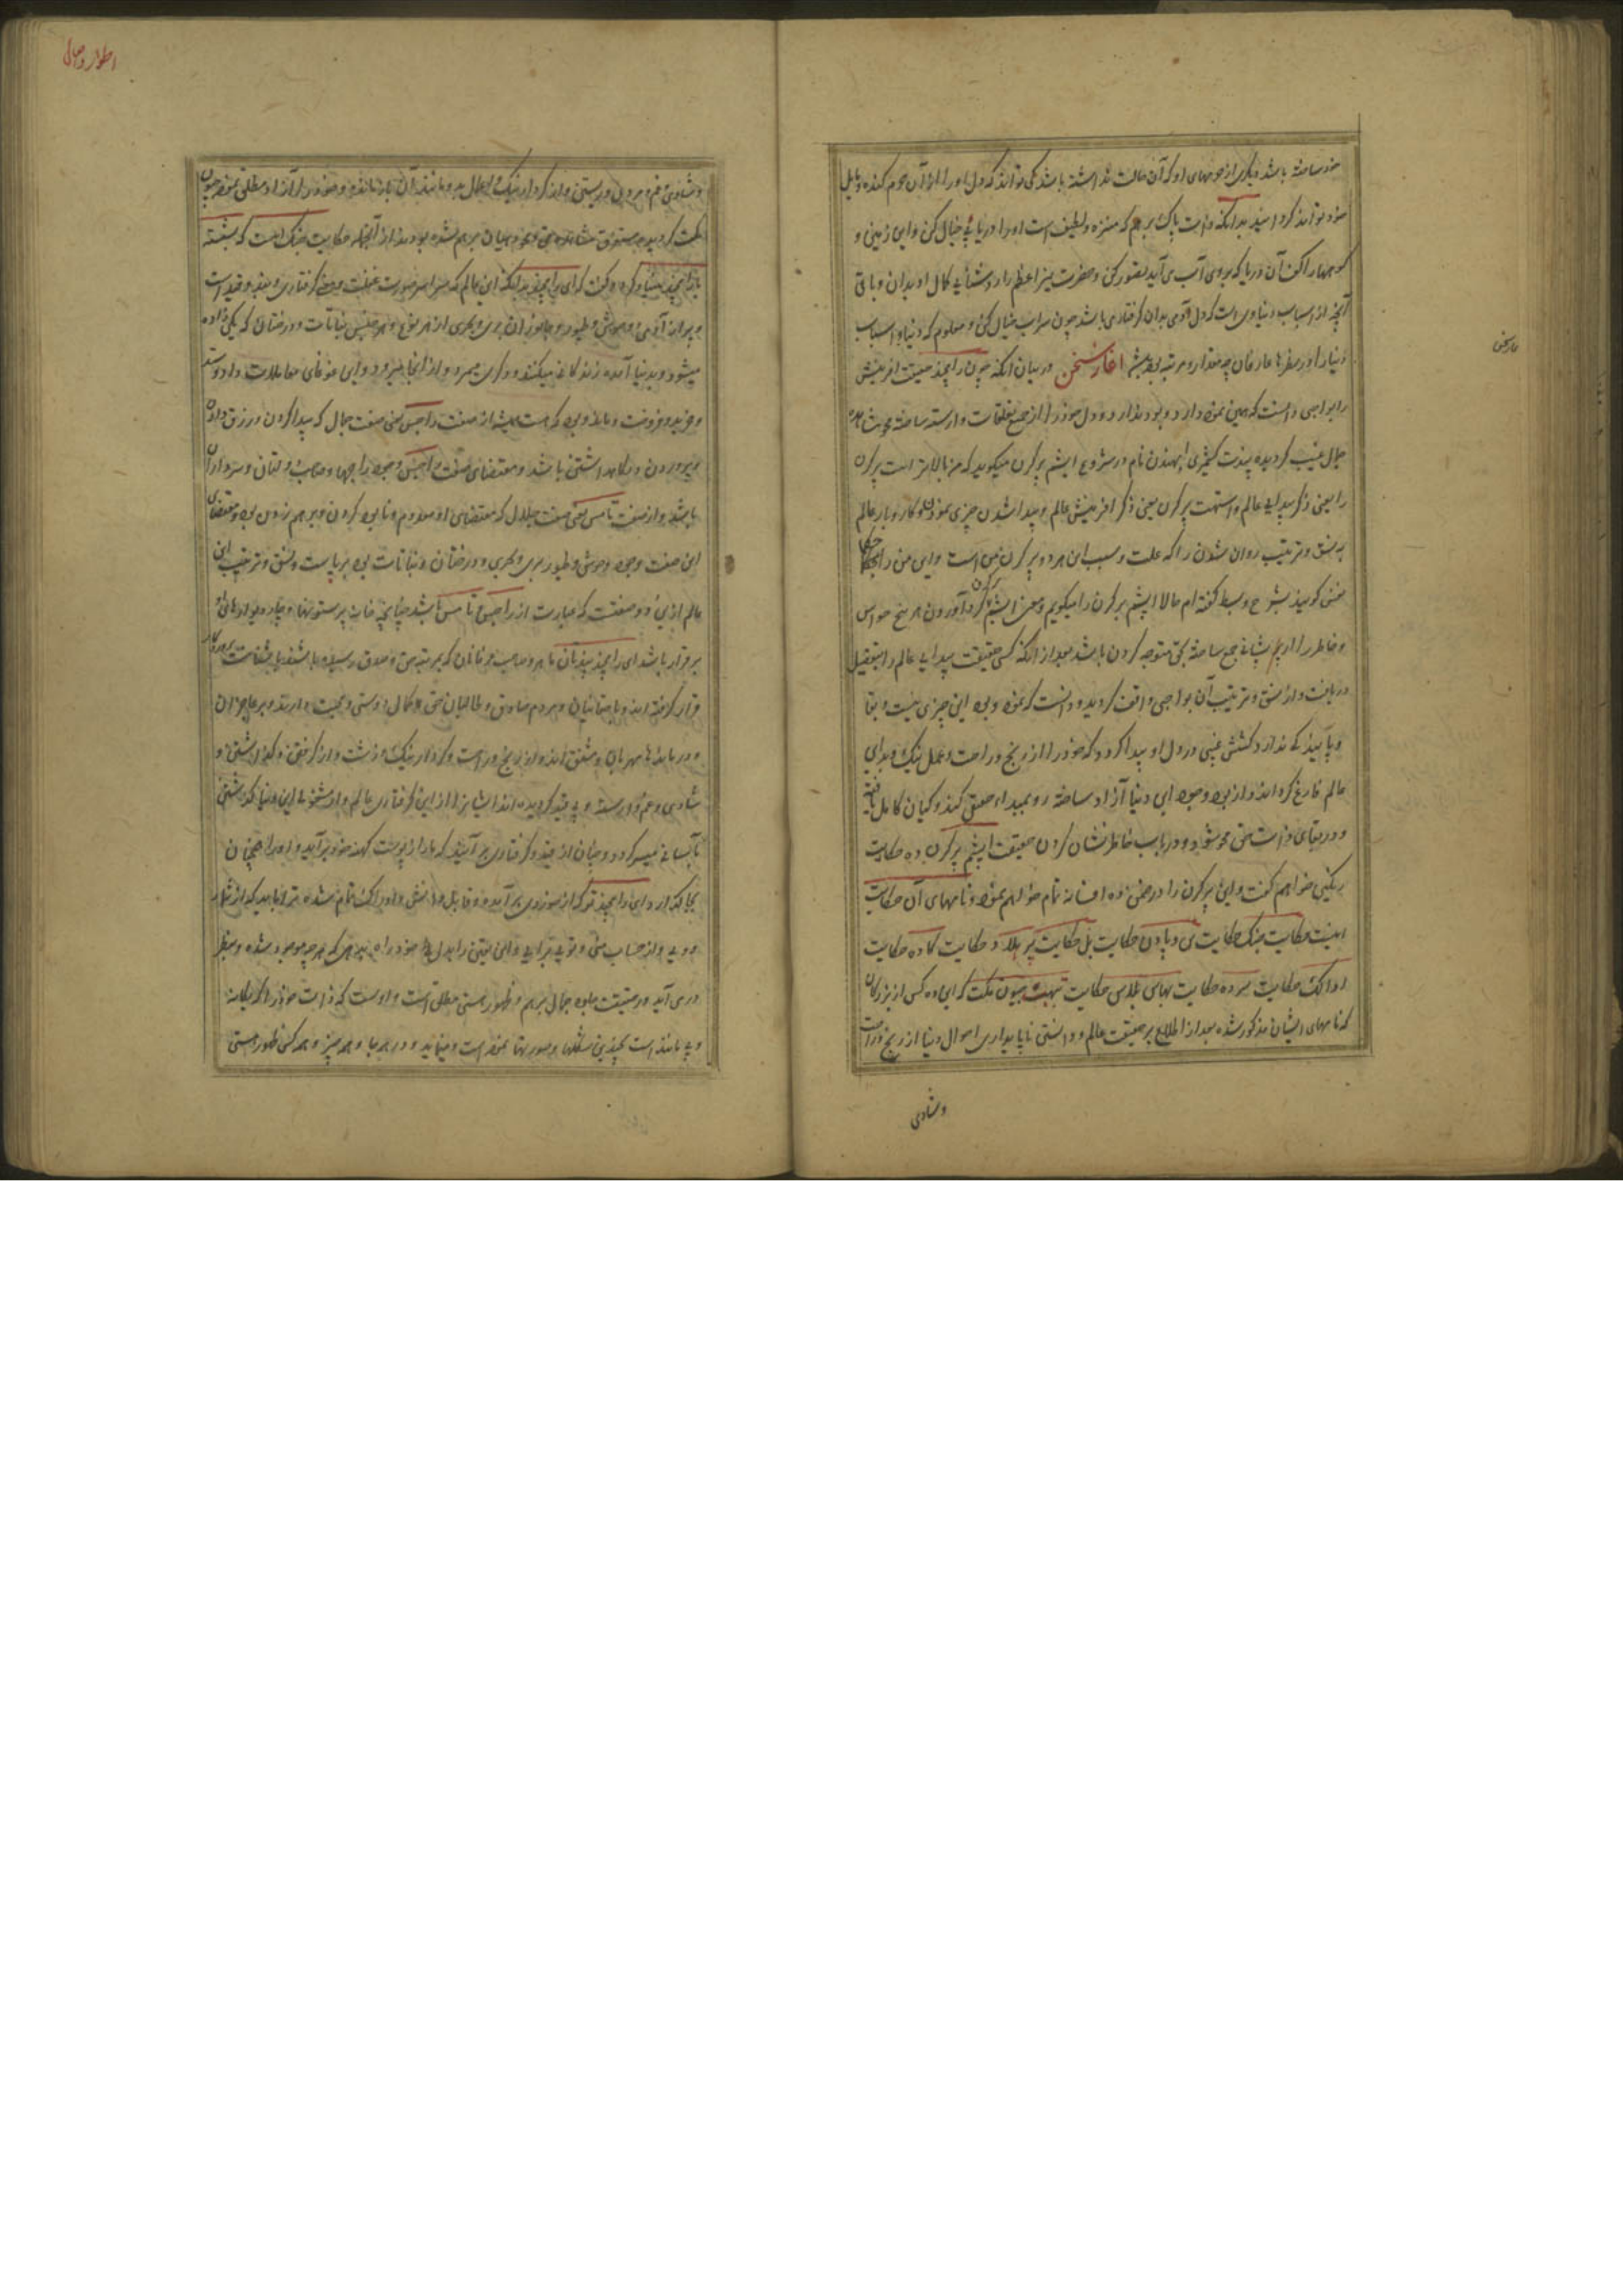 خود ساخته باشد و یکی از حرمهای او که آن حالت نداشته باشد کی تواند که دل او را از آن حرم کنده مایل
خود تواند کرد بدانکه ذات پاک برهم که منزه و لطیف است او را دریائی خیال کن و این زمین و
کوهها را کف آن دریا که بروی آب می آید تصور کن و حضرت نیر اعظم را روشنائی کمال او بدان و باقی
آنچه از اسباب دنیاوی است که دل آدمی بدان گرفتار می باشد چون سراب خیال کن و معلوم که دنیا و اسباب
دنیا را در نظرها عارفان چه مقدار و مرتبه بوده باشد آغاز سخن در بیان آنکه چون رامچند حقیقت آفرینش
را بواجبی دانست که همین نمود دارد و بود ندارد و دل خود را از جمیع تعلقات وارسته ساخته
جمال غیب گردیده پندت کشمیری ابهنندن نام در شروع اپشم پرکرن میگوید که
را یعنی ذکر پیدایی عالم و استهت پرکرن یعنی ذکر آفرینش عالم و پیدا شدن چیزی نمودن و کاروبار عالم
به نسق و ترتیب روان شدن را که علت و سبب این هر دو پرکرن من است و این من را
بشرح و بسط گفته ام حالا اپشم پرکرن را میگویم و معنی اپشم گرد آوردن هر پنج حواس
و خاطر را از پریشانی جمع ساخته بحق متوجه کردن باشد بعد از آنکه کسی حقیقت پیدایی عالم را بتفصیل
دریافت و از نسق و ترتیب آن بواجبی واقف گردید و دانست که نمود وبود این چیزی نیست و بقا
و پایندگی ندارد کشش غیبی در دل او پیدا گردد که خود را از رنج و راحت و عمل نیک و بد این
عالم فارغ کرده اند و از بود و نبود این دنیا آزاد ساخته رو بمبداء حقیقی کند و گیان کامل یافته
و در بقای ذات حق محو شود و در باب خاطر نشان کردن حقیقت اپشم پرکرن ده حکایت
برنگین خواهم گفت و این پرکرن را در ضمن ده افسانه تمام خواهم نمود و نامهای آن حکایت
اینست حکایت جنک حکایت پن و پاون حکایت بل حکایت پرهلاد حکایت گاده حکایت
اودالک حکایت سرده حکایت بهاس بلاس حکایت بیت هبیه مکت که این ده کس از بزرگان
که نامهای ایشان مذکور شده بعد از اطلاع بر حقیقت عالم و دانستن ناپایداری احوال دنیا از رنج و راحت
و شادی
اطوار در حال
و شادی و غم و مردن و زیستن و از کردار نیک و اعمال بد و مانند آن باز مانده و خود را آزاد مطلق نموده جیون
مکت گردیده مستغرق مشاهده حق و محو گیان برهم شده بودند از آنجمله حکایت جنک است که بسشته
با رامچند بنیاد کرده گفت که ای رامچند بدانکه این عالم که سراسر صورت غفلت و محض گرفتاری و بند و قید است
و پر از آدمی و وحوش و طیور و جانوران بری و بحری از هر نوع و هر جنس نباتات و درختان که یکی زاده
میشود و بدنیا آمده زندگانی میکند و دیگری میمرد و از اینجا میرود و این غوغای معاملات داد و ستد
و خرید و فروخت و ماند و بود که هست همیشه از صفت راجس یعنی صفت جمال که پیدا کردن و رزق دادن
و پروردن و نگاهداشتن باشد و مقتضای صفت راجس وجود راجها و صاحب دولتان و سرداران
باشد و از صفت تامس یعنی صفت جلال که مقتضای او معدوم و نابود کردن و برهم زدن بود و مقتضای
این صفت وجود وحوش و طیور بری و بحری و درختان و نباتات بود برپاست و نسق و ترتیب این
عالم ازین دو صفت که عبارت از راجس و تامس باشد چنانچه خانه بر ستونها و چادر بر چوبها
برقرار باشد ای رامچند پندتان ماهر و صاحب عرفانان که بمرتبه حق و صدق رسیده باشند
قرار گرفته اند و با حقانیان و مردم صادق و طالبان حق کمال دوستی و محبت دارند و بر عاجزان
و درماندها مهربان و مشفق اند و از رنج و راحت و کردار نیک و زشت و از گرفتن و گذاشتن و
شادی و غم وارسته و بی قید گردیده اند ایشان را از این گرفتاری عالم و از مشغولی این دنیا گذشتن
بآسانی میسر گردد و چنان از قید و گرفتاری برآیند که مار از پوست کهنه خود برآید و او را همچنان
بجا گذارد ای رامچند تو که از خودی برآمده و قابل دانش و ادراک تمام شده ترا باید که از شمار
دویی و از حساب منی و توئی برآئی و این یقین را بدل خود راه دهی که هر چه موجود شده و بنظر
در می آید در حقیقت جلوه جمال برهم و ظهور هستی مطلق است و اوست که ذات خود را که یگانه
و بی مانند است بچندین شکلها و صورتها نموده است و مینماید و در هر جا و همه چیز و همه کس ظهور هستی